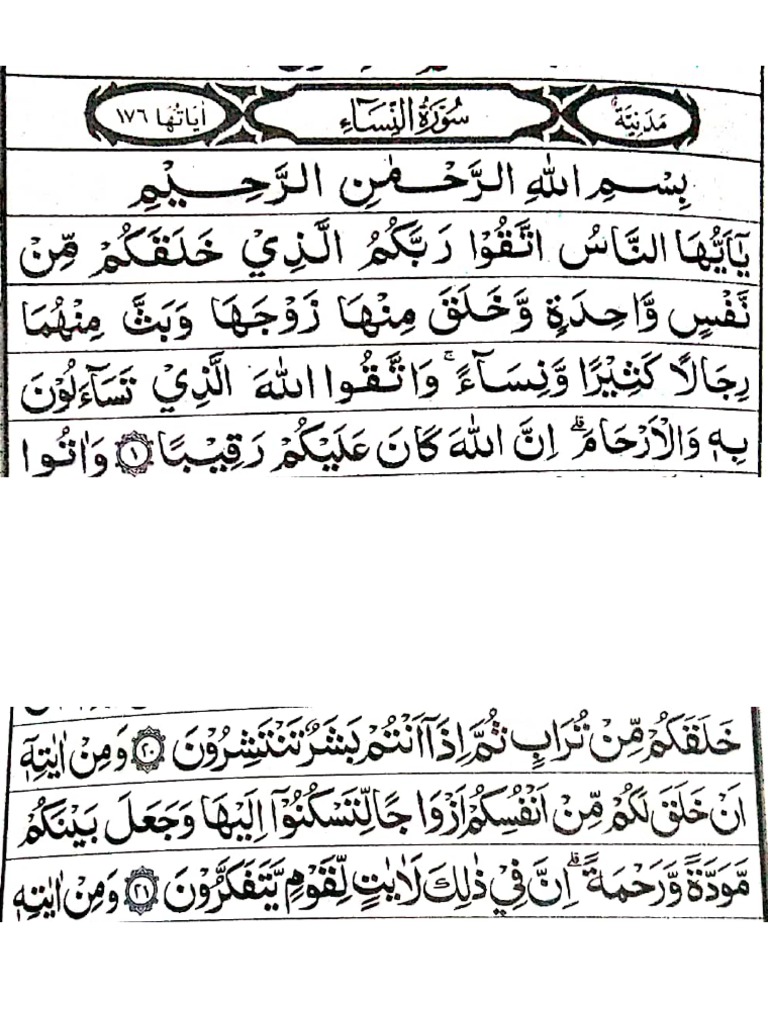 مَدَنِيَّةٌ سُوْرَةُ النِّسَآءِ اٰيَاتُهَا ١٧٦
بِسْمِ اللّٰهِ الرَّحْمٰنِ الرَّحِيْمِ
يٰٓاَيُّهَا النَّاسُ اتَّقُوْا رَبَّكُمُ الَّذِيْ خَلَقَكُمْ مِّنْ
نَّفْسٍ وَّاحِدَةٍ وَّخَلَقَ مِنْهَا زَوْجَهَا وَبَثَّ مِنْهُمَا
رِجَالًا كَثِيْرًا وَّنِسَآءً ۚ وَاتَّقُوا اللّٰهَ الَّذِيْ تَسَآءَلُوْنَ
بِهٖ وَالْاَرْحَامَ ۗ اِنَّ اللّٰهَ كَانَ عَلَيْكُمْ رَقِيْبًا ١ وَاٰتُوا
خَلَقَكُمْ مِّنْ تُرَابٍ ثُمَّ اِذَآ اَنْتُمْ بَشَرٌ تَنْتَشِرُوْنَ ٢٠ وَمِنْ اٰيٰتِهٖٓ
اَنْ خَلَقَ لَكُمْ مِّنْ اَنْفُسِكُمْ اَزْوَاجًا لِّتَسْكُنُوْٓا اِلَيْهَا وَجَعَلَ بَيْنَكُمْ
مَّوَدَّةً وَّرَحْمَةً ۗ اِنَّ فِيْ ذٰلِكَ لَاٰيٰتٍ لِّقَوْمٍ يَّتَفَكَّرُوْنَ ٢١ وَمِنْ اٰيٰتِهٖ